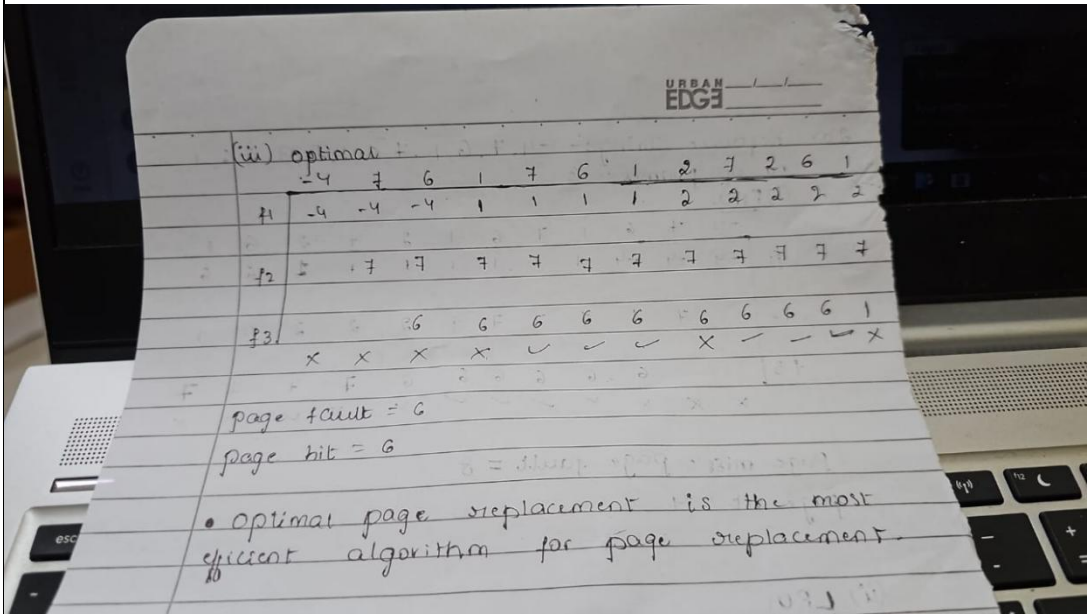 URBAN
EDGE
(iii) optimal
-4 7 6 1 7 6 1 2 7 2 6 1
f1 -4 -4 -4 1 1 1 1 2 2 2 2 2
f2 7 7 7 7 7 7 7 7 7 7 7
f3 6 6 6 6 6 6 6 6 6 1
× × × × ✓ ✓ ✓ × ✓ ✓ ✓ ×
page fault = 6
page hit = 6
• optimal page replacement is the most
efficient algorithm for page replacement.
esc
f12